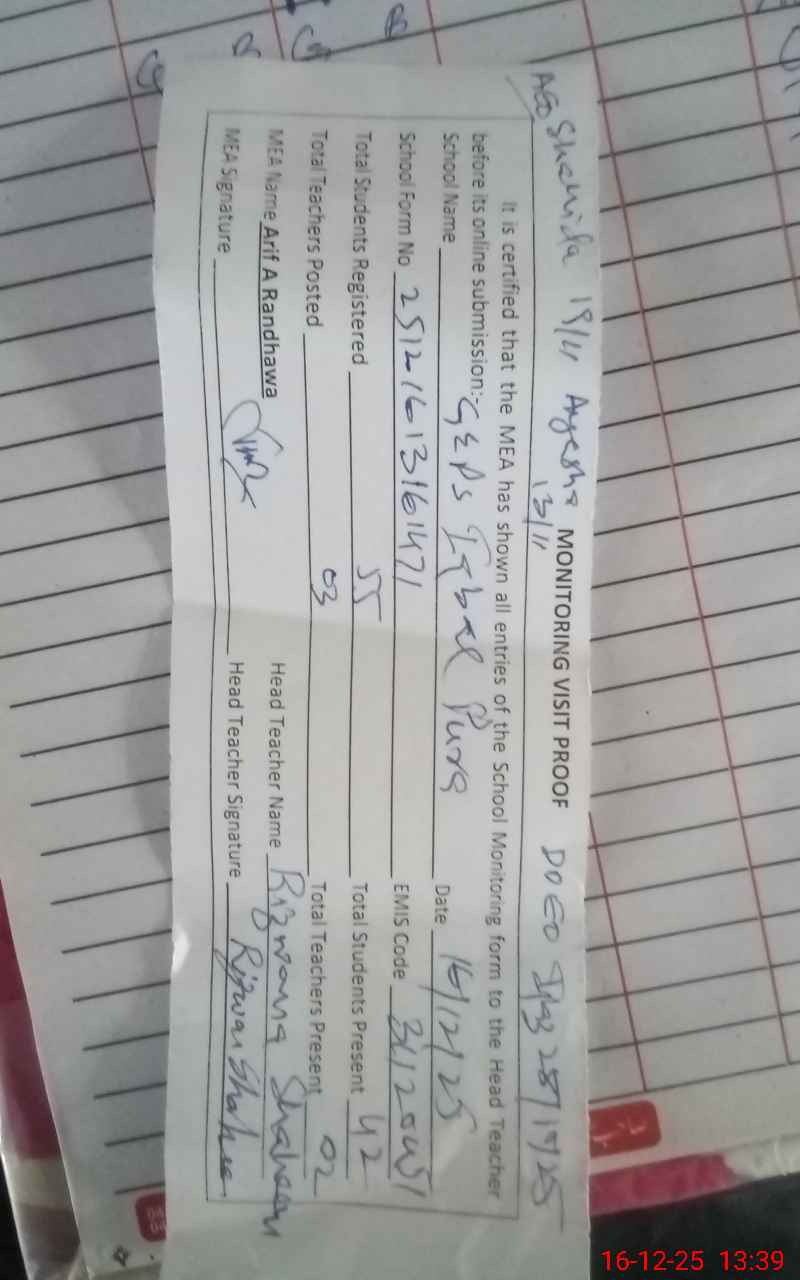 AEO Shahida 19/11 Ayesha 13/11 DOEO Ijaz
MONITORING VISIT PROOF
It is certified that the MEA has shown all entries of the School Monitoring form to the Head Teacher
before its online submission:-
School Name GEPS Iqbal Pura Date 16/12/25
School Form No 25121613161471 EMIS Code
Total Students Registered 55 Total Students Present 42
Total Teachers Posted 03 Total Teachers Present 02
MEA Name Arif A Randhawa Head Teacher Name Rizwana Shaheen
MEA Signature Head Teacher Signature Rizwan Shaheen
16-12-25 13:39